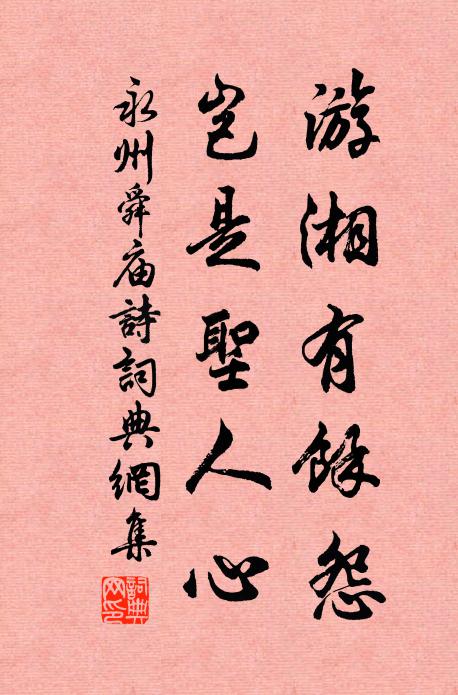 游湘有餘怨
豈是聖人心
永州舜庙詩詞典網集
詞典
网印